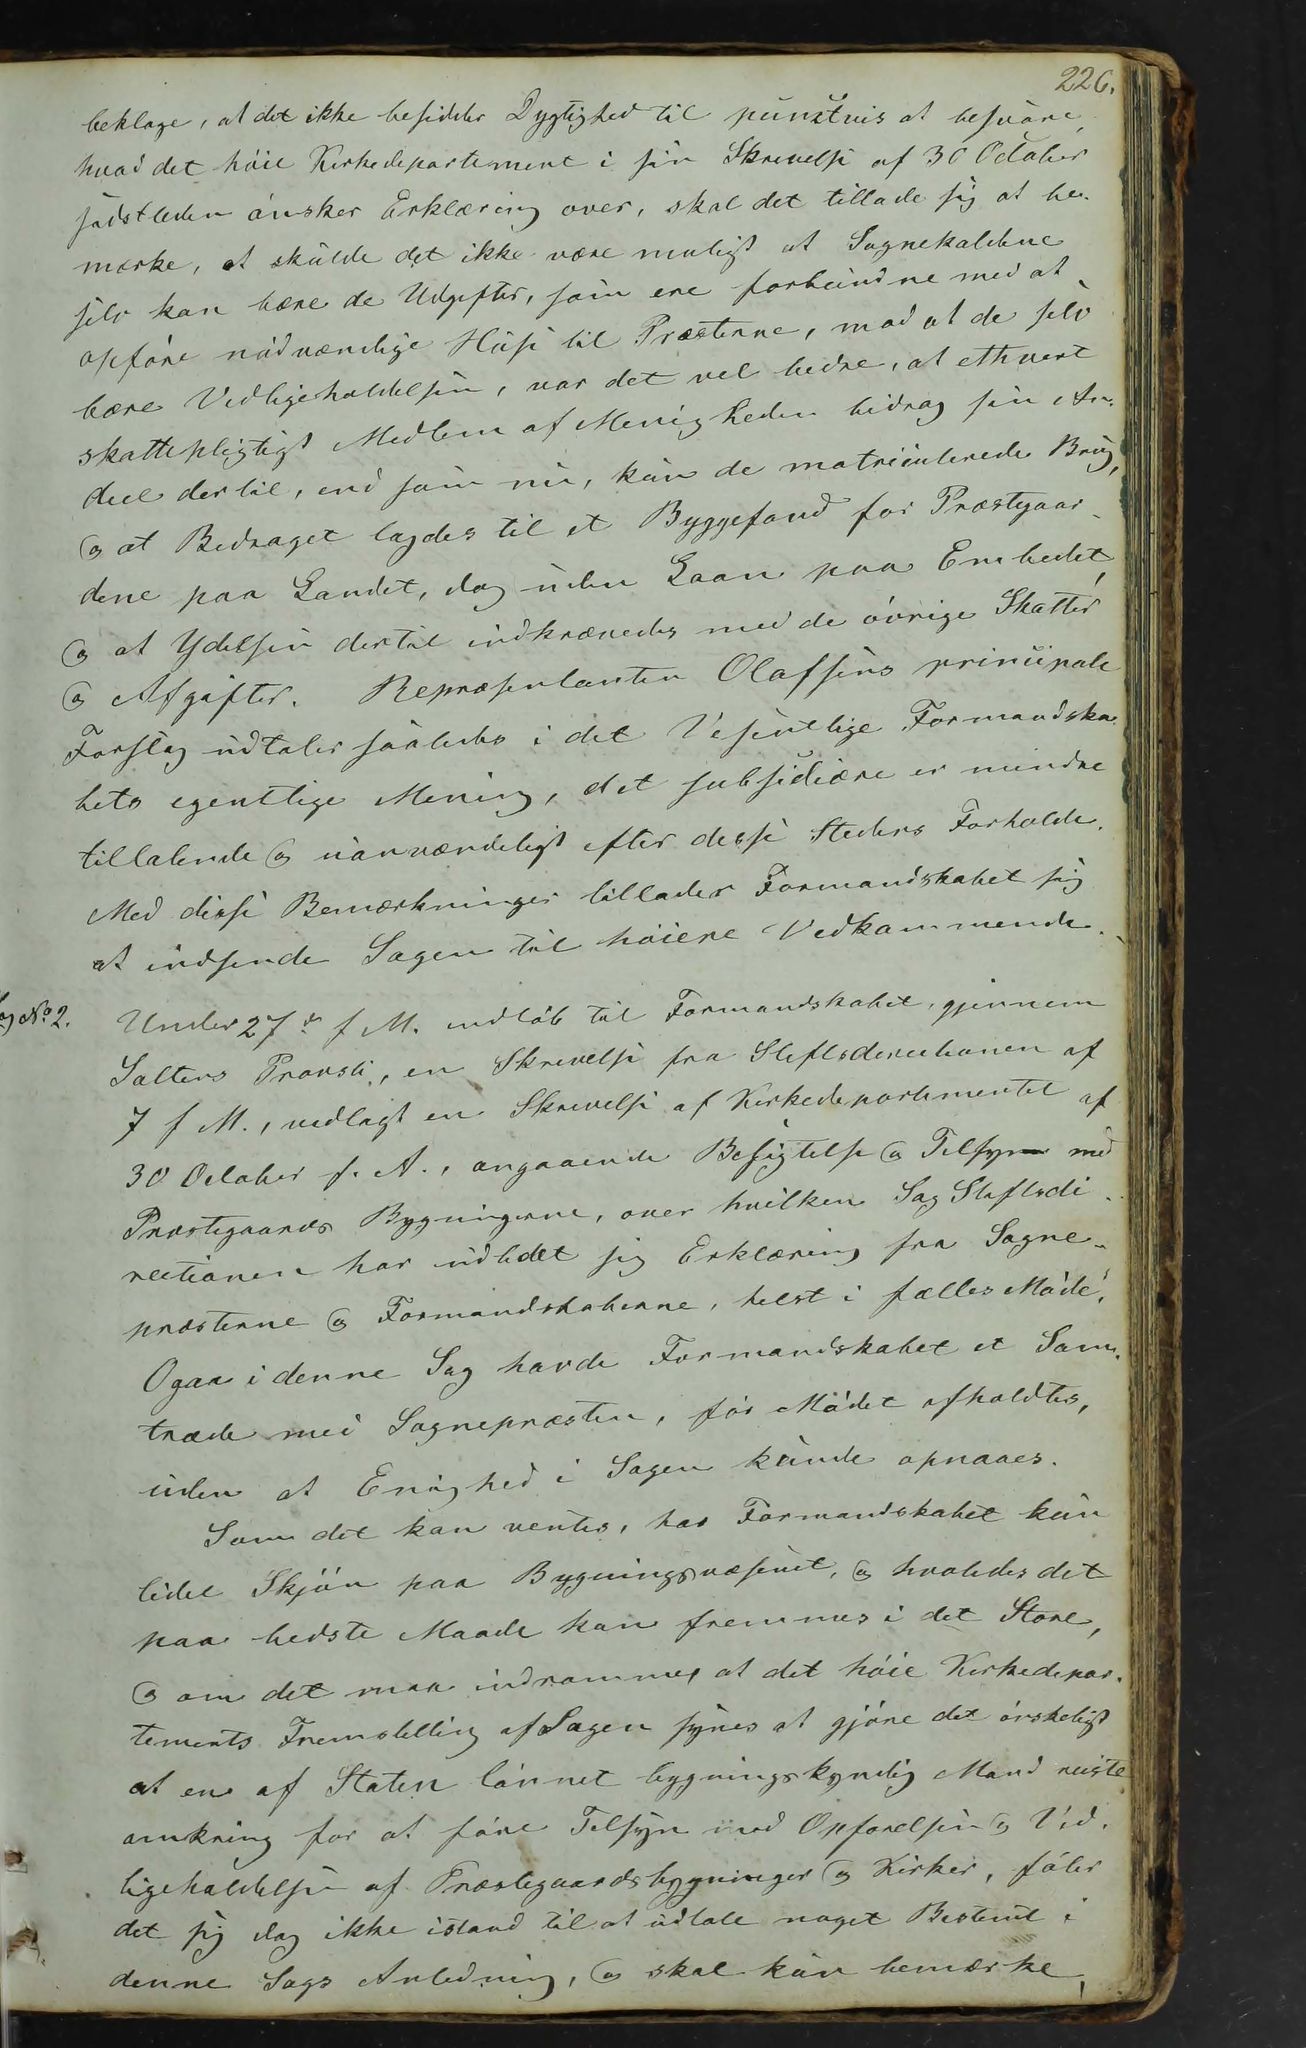 226.
beklage, at det ikke besidder Dygtighed til punktvis at besvare,
hvad det høie Kirkedepartement i sin Skrivelse af 30 October
sidstleden ønsker Erklæring over, skal det tillade sig at be-
mærke, at skulde det ikke være muligt at Sognekaldene
selv kan bære de Udgifter, som ere forbundne med at
opføre nødvændige Huse til Præsterne, mod at de selv
bære Vedligeholdelsen, var det vel bedre, at ethvert
skattepligtigt Medlem af Menigheden bidrog sin An-
deel dertil, end som nu, kun de matriculerede Brug,
og at Bedraget lagdes til et Byggefond for Præstgaar-
dene paa Landet, dog uden Laan paa Embedet,
og at Ydelsen dertil indkrævedes med de øvrige Skatter
og Afgifter. Repræsentanten Olafsens principale
Forslag udtaler saaledes i det Vesentlige Formandska-
bets egentlige Mening, det subsidiære er mindre
tiltalende og uanvændeligt efter disse Steders Forholde.
Med disse Bemærkninger tillader Formandskabet sig
at indsende Sagen til høiere Vedkommende.
Sag No 2. Under 27de f M. indløb til Formandskabet, gjennem
Saltens Provsti, en Skrivelse fra Stiftsdirectionen af
7 f M., vedlagt en Skrivelse af Kirkedepartementet af
30 October f. A., angaaende Besigtelse og Tilsyn med
Præstegaards Bygningerne, over hvilken Sag Stiftsdi-
rectionen har udbedet sig Erklæring fra Sogne-
præsterne og Formandskaberne, helst i fælles Møde.
Ogaa i denne Sag havde Formandskabet et Sam-
træde med Sognepræsten, før Mødet afholdtes,
uden at Enighed i Sagen kunde opnaaes.
Som det kan ventes, har Formandskabet kun
lidet Skjøn paa Bygningsvæsenet, og hvoledes det
paa bedste Maade kan fremmes i det Store,
og om det maa indrømmes at det høie Kirkedepar-
tements Fremstilling af Sagen synes at gjøre det ønskeligt
at en af Staten lønnet bygningskyndig Mand reiste
omkring for at føre Tilsyn med Opførelsen og Ved-
ligeholdelsen af Præstegaardsbygninger og Kirker, føler
det sig dog ikke istand til at udtale noget Bestemt i
denne Sags Anledning, og skal kun bemærke,